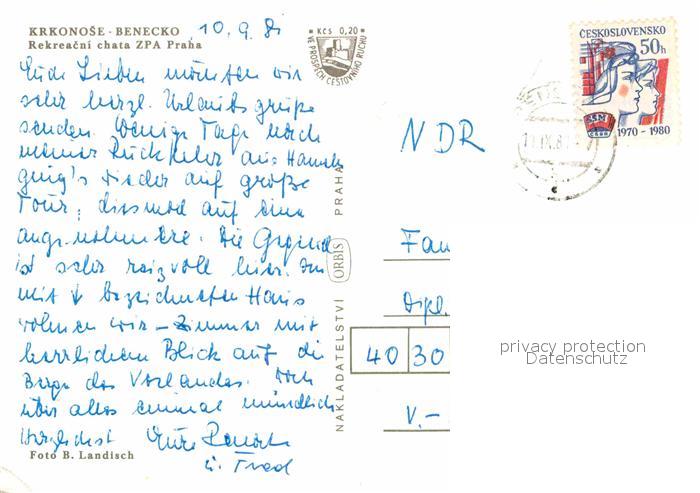 KRKONOŠE - BENECKO
Rekreační chata ZPA Praha
10.9.81
Kčs 0,20
VE PROSPĚCH CESTOVNÍHO RUCHU
ČESKOSLOVENSKO
50h
SSM
1970 - 1980
Euch Lieben möchten wir
sehr herzl. Urlaubsgrüße
senden. Wenige Tage nach
meiner Rückkehr aus
ging's wieder auf große
Tour, diesmal auf eine
angenehmere. Die Gegend
ist sehr reizvoll hier. Im
mit ↓ bezeichneten Haus
wohnen wir – Zimmer mit
herrlichem Blick auf die
Berge des Vorlandes. Doch
über alles einmal mündlich
Herzlichst Eure
u. Fred
Foto B. Landisch
NAKLADATELSTVÍ ORBIS PRAHA
NDR
Fam
Dipl.
40 30
V.–
privacy protection
Datenschutz